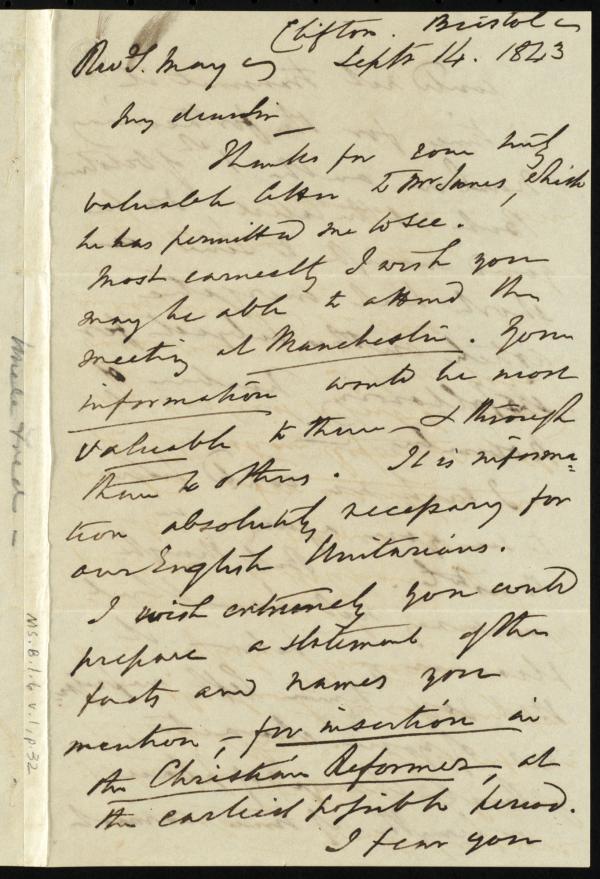 Clifton. Bristol
Septr 14. 1843
Rev S. May
My dear Sir
Thanks for your truly
valuable letter to Mr James, which
he has permitted me to see.
Most earnestly I wish you
may be able to attend the
meeting at Manchester. Your
information would be most
valuable to them - & through
them to others. It is informa=
tion absolutely necessary for
our English Unitarians.
I wish extremely you could
prepare a statement of the
facts and names you
mention, - for insertion in
the Christian Reformer, at
the earliest possible period.
I fear you
MS.B.1.6 v.1, p.32